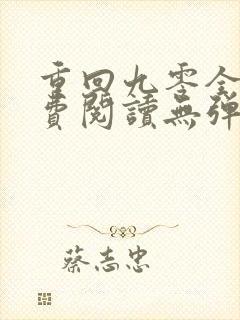 重回九零全
費閱讀無彈
蔡志忠